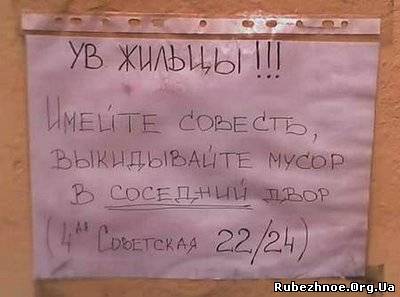 УВ ЖИЛЬЦЫ!!!
ИМЕЙТЕ СОВЕСТЬ,
ВЫКИДЫВАЙТЕ МУСОР
В СОСЕДНИЙ ДВОР
(4ая СОВЕТСКАЯ 22/24)
Rubezhnoe.Org.Ua